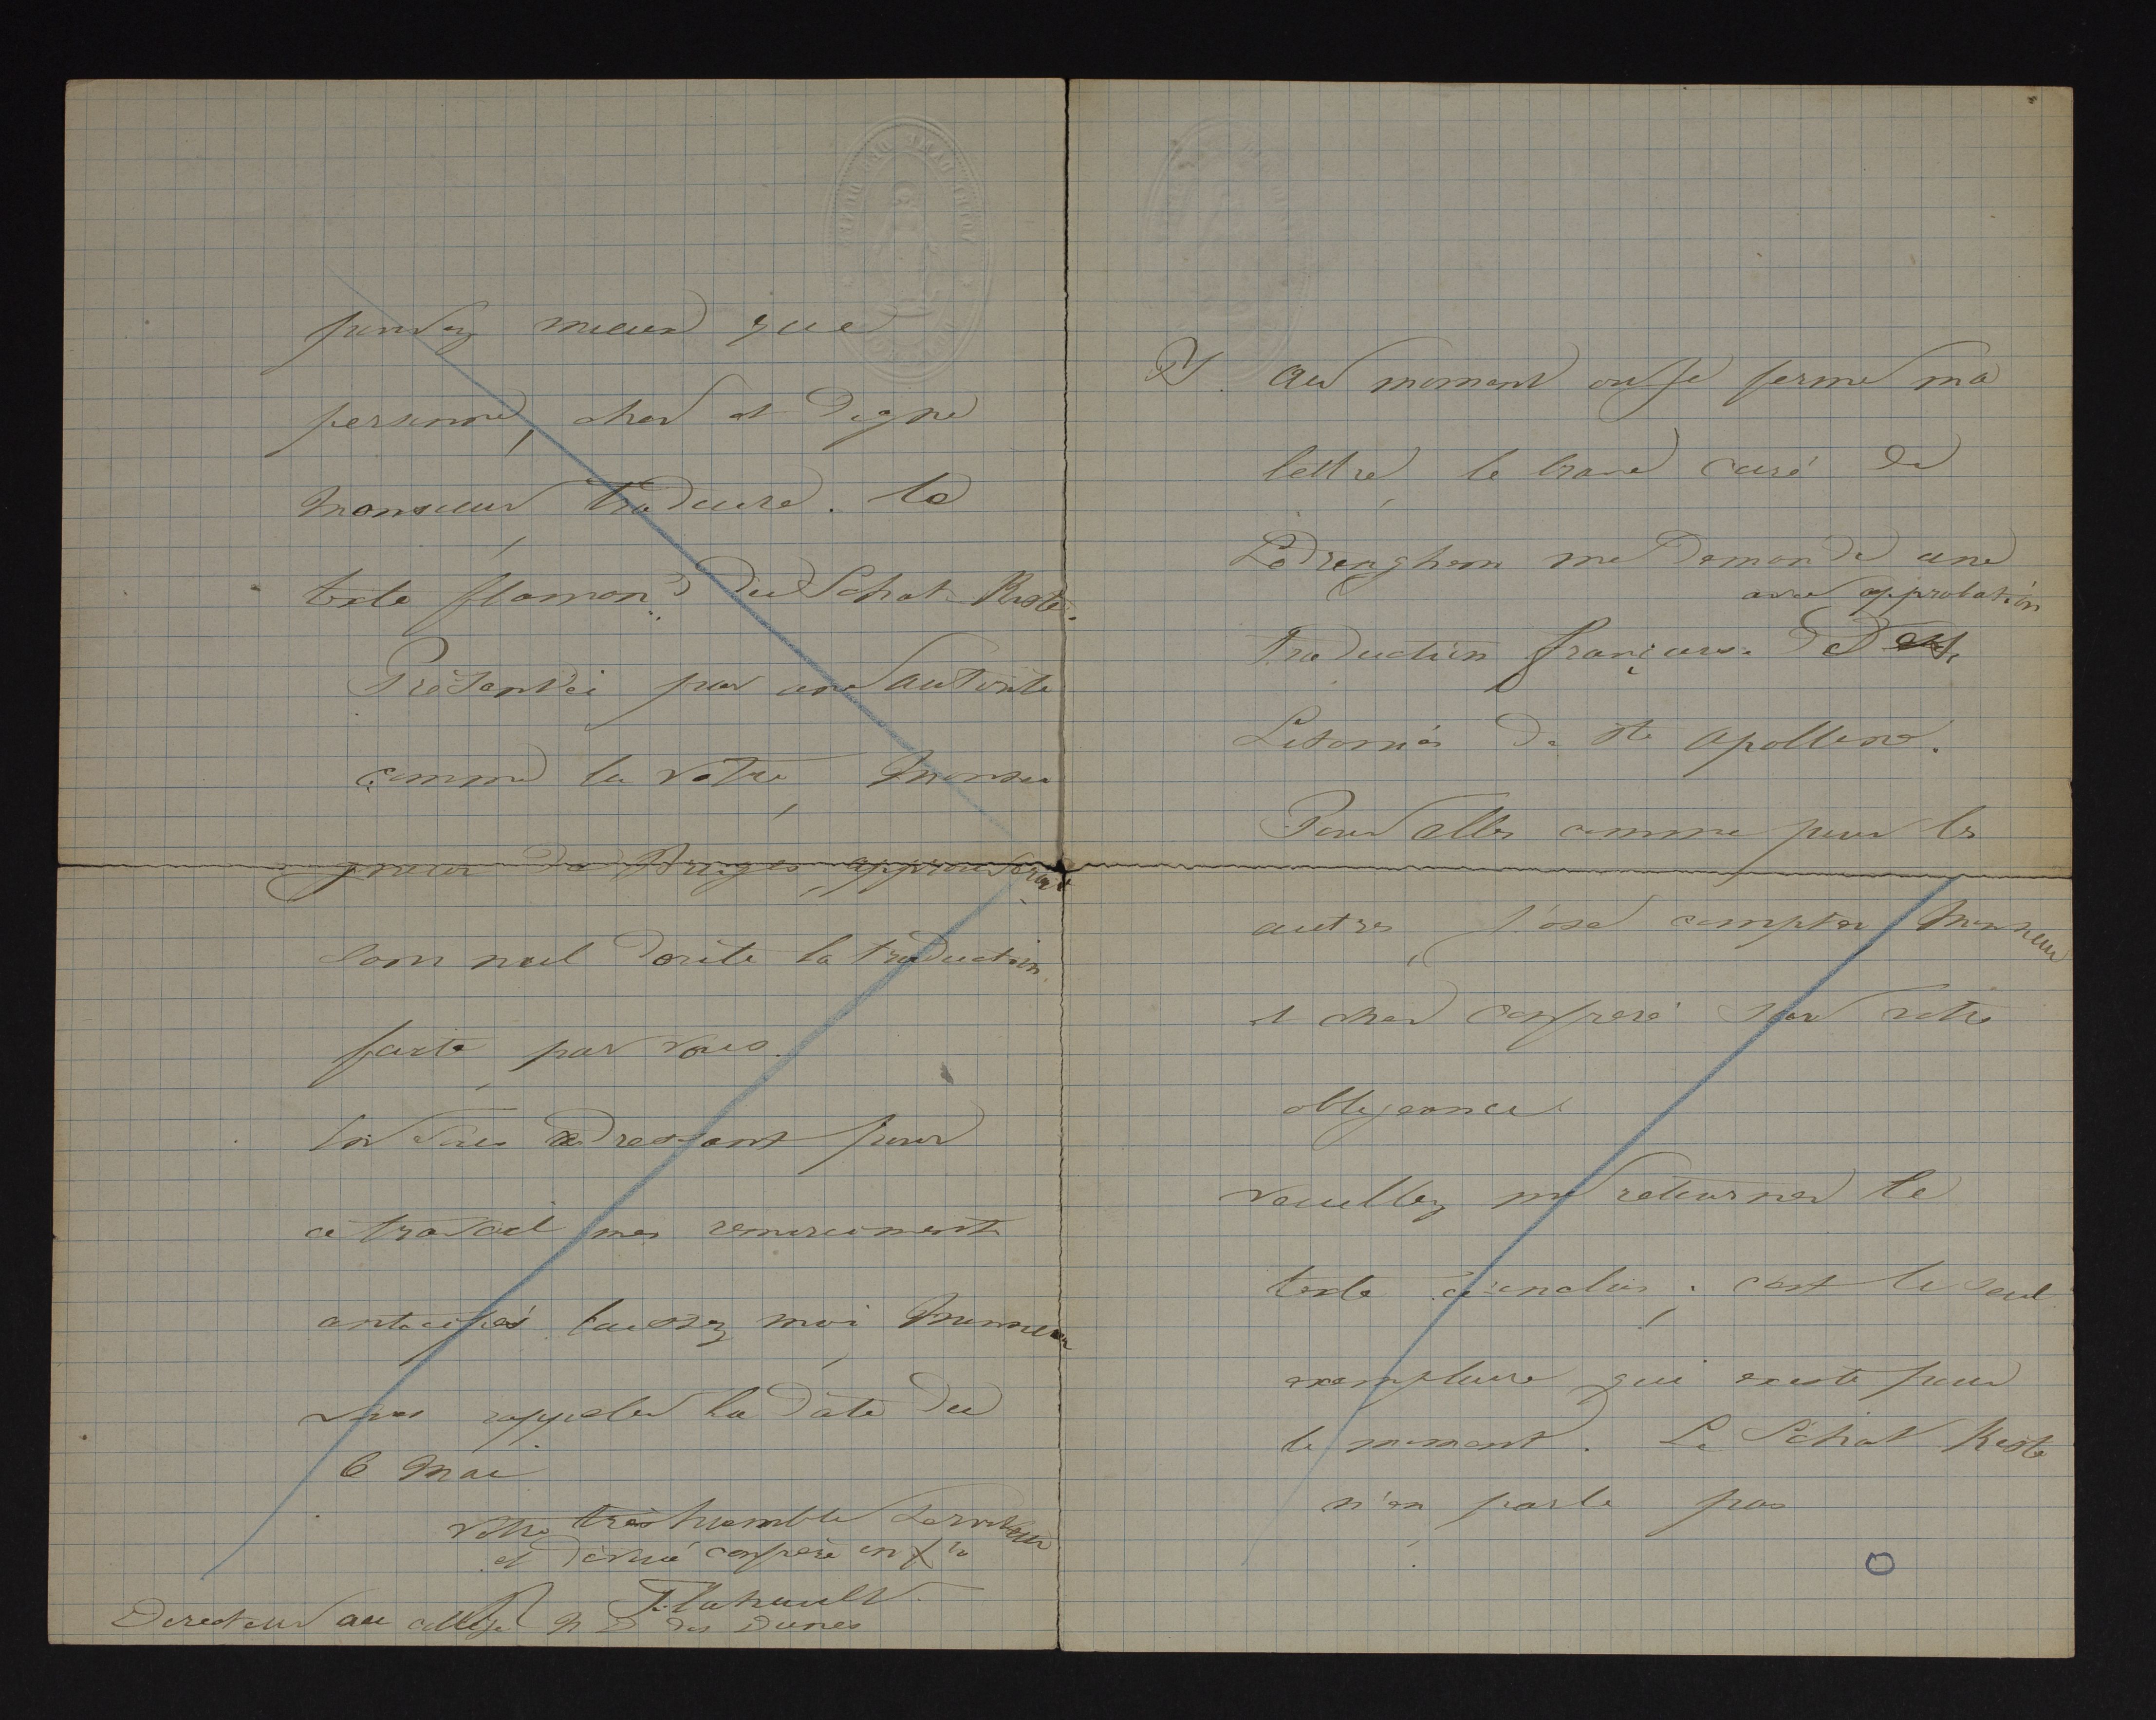 pourrez mieux que
personne, cher et digne
monsieur, traduire. le
texte flamand du Schat Kiste.
Présentée par une autorité
comme la votre, Monsei
gneur de Bruges approuvera
sans nul doute la traduction
faite par vous.
En vous adressant pour
ce travail mes remerciments
anticipés laissez moi, Monsieur
vous rappeler la date du
6 Mai
Votre très humble serviteur
et dévoué confrère en X
Flahault
Directeur au collège N D des Dunes
PS. au moment ou je ferme ma
lettre, le brave curé de
Ledrenghem me demande une
avec approbation
Traduction française des
Litanies de Ste Apolline.
Pour elles comme pour les
autres, j'ose compter Monsieur
et cher confrère sur votre
obligeance
veuillez me retourner le
texte ci-inclus ; c'est le seul
exemplaire qui existe pour
le moment. Le Schat Kiste
n'en parle pas